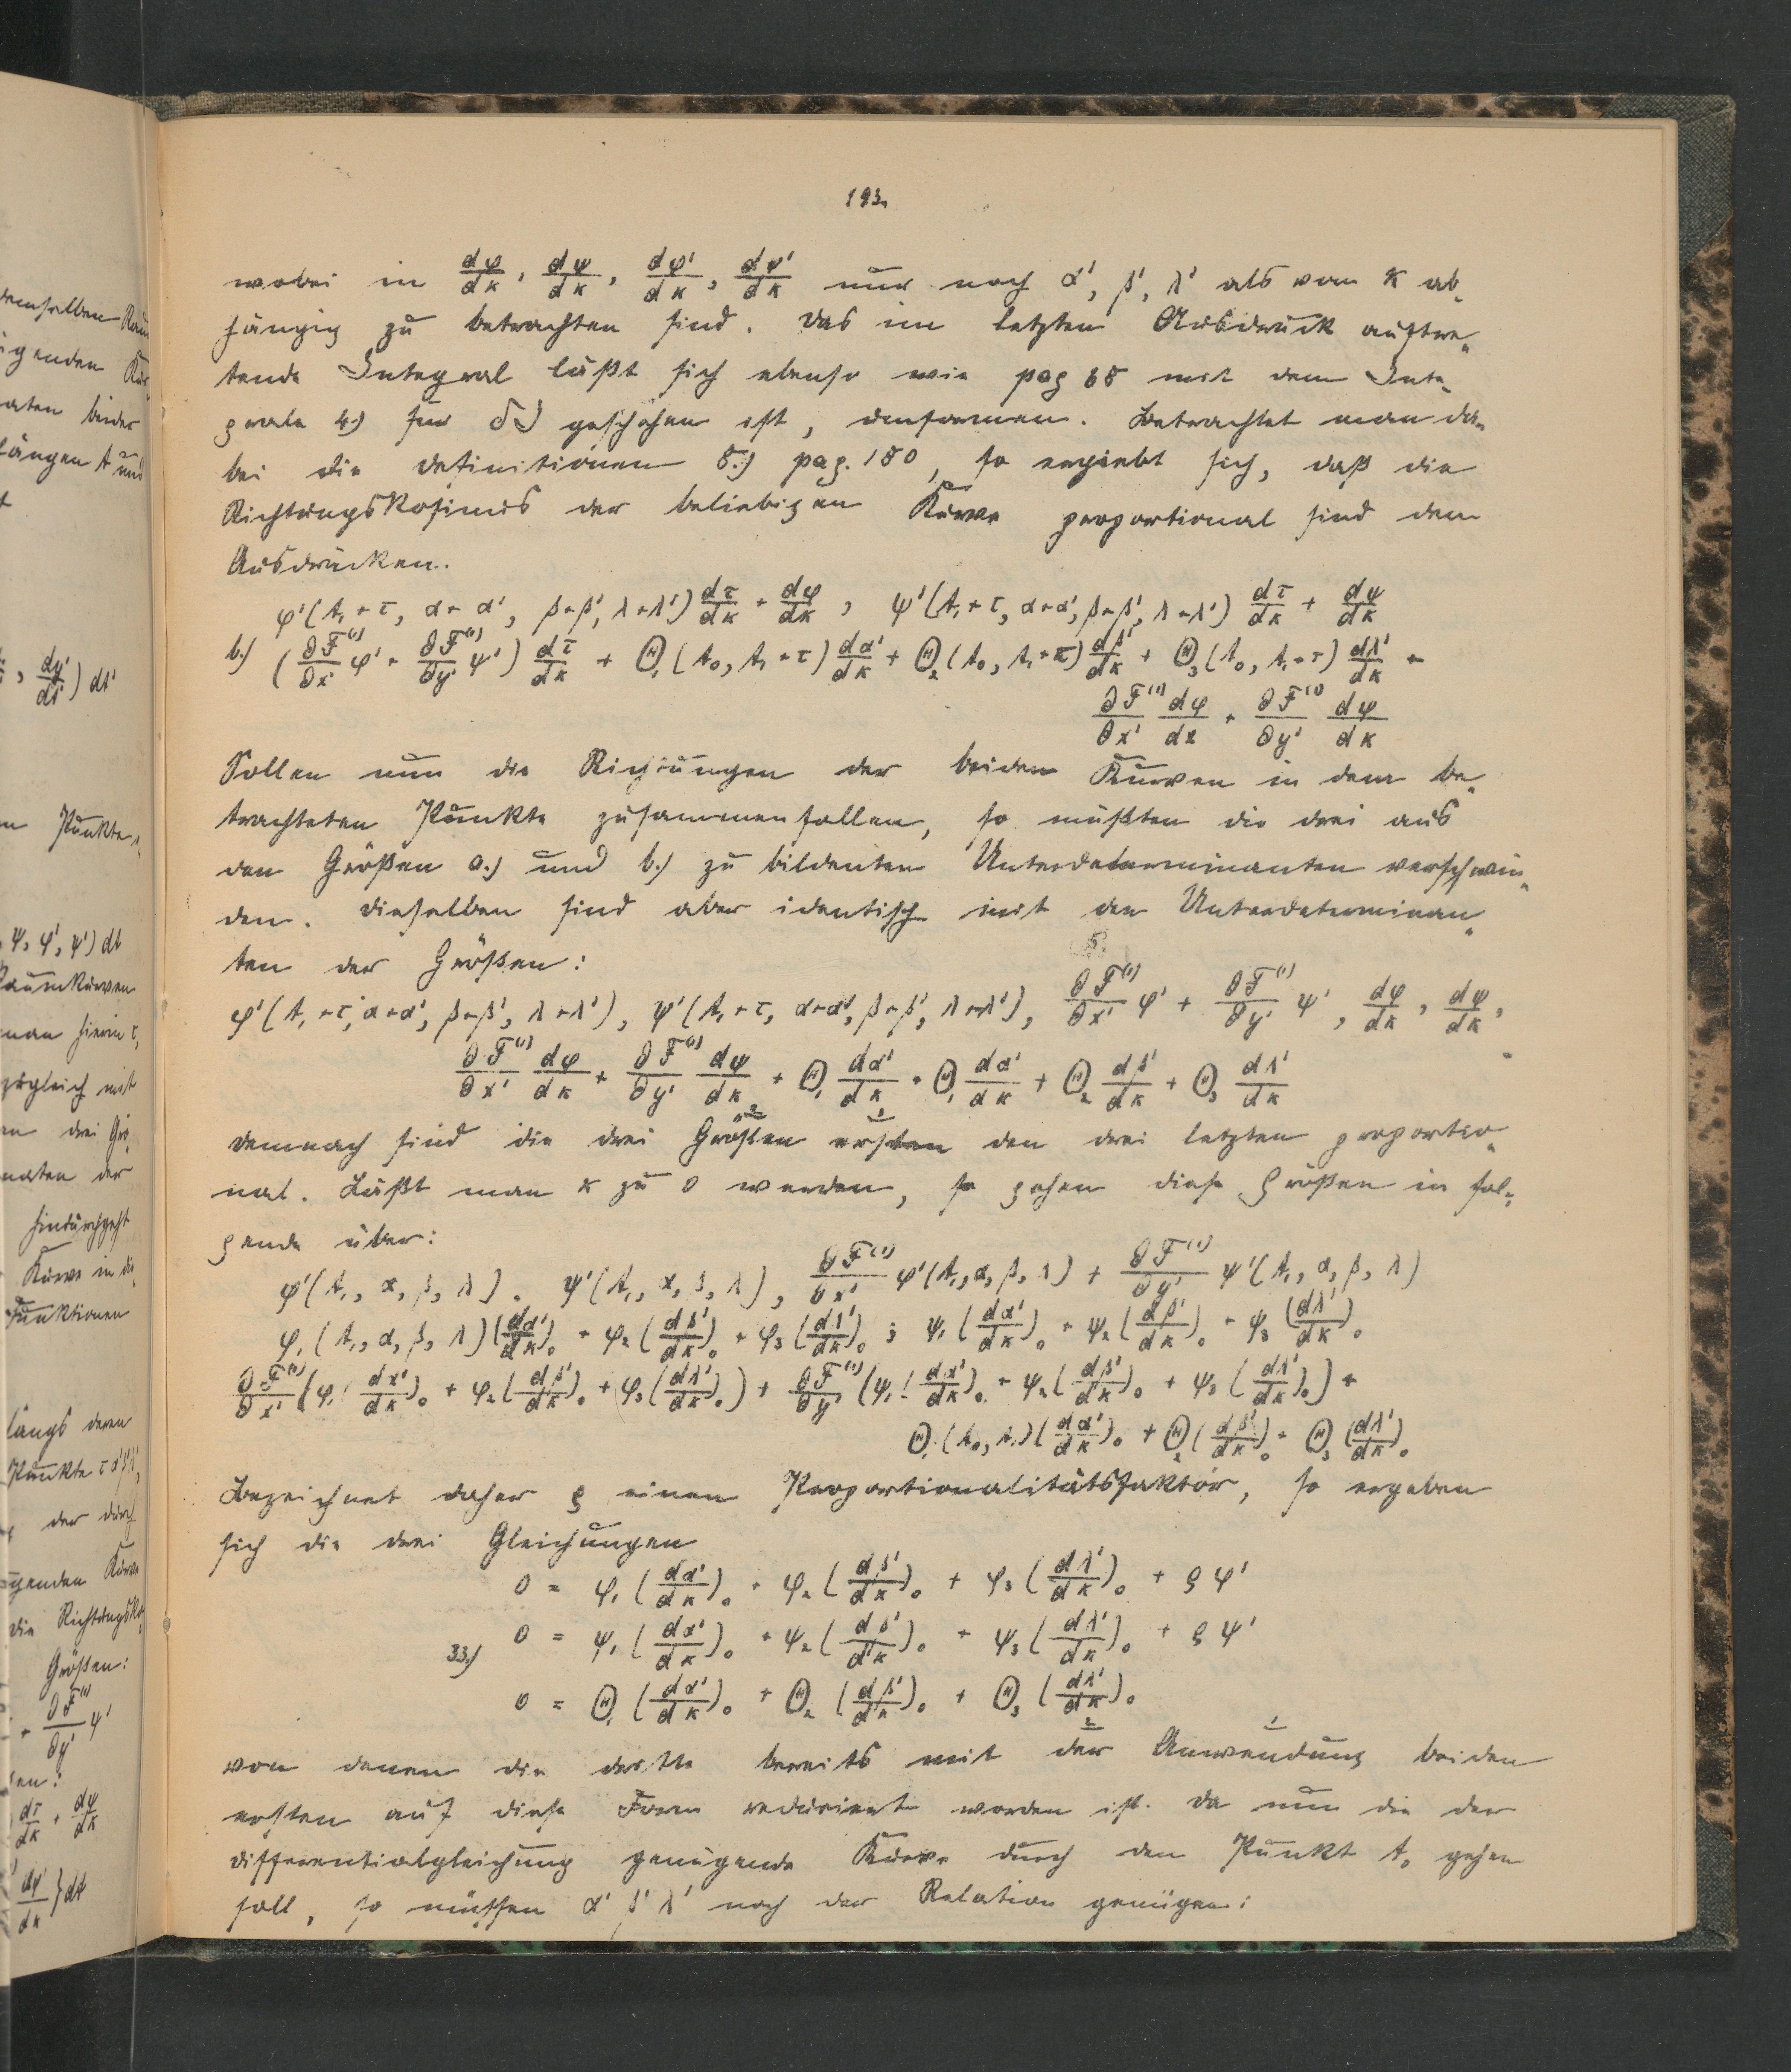 193.
wobei in dφ/dκ, dψ/dκ, dφ'/dκ, dψ'/dκ nur noch α', β', λ' als von κ ab-
hängig zu betrachten sind. Das im letzten Ausdruck auftre-
tende Integral läßt sich ebenso wie pag 68 mit dem Inte-
grale 4.) für δJ geschehen ist, umformen. Betrachtet man da-
bei die Definitionen 8.) pag. 180, so ergiebt sich, daß die
Richtungskosinus der beliebigen Kurve proportional sind den
Ausdrücken.
φ'(t₁+τ, α+α', β+β', λ+λ') dτ/dκ + dφ/dκ, ψ'(t₁+τ, α+α', β+β', λ+λ') dτ/dκ + dψ/dκ
b.) (∂F⁽¹⁾/∂x' φ' + ∂F⁽¹⁾/∂y' ψ') dτ/dκ + Θ₁(t₀, t₁+τ) dα'/dκ + Θ₂(t₀, t₁+τ) dβ'/dκ + Θ₃(t₀, t₁+τ) dλ'/dκ +
∂F⁽¹⁾/∂x' dφ/dκ + ∂F⁽¹⁾/∂y' dψ/dκ
Sollen nun die Richtungen der beiden Kurven in dem be-
trachteten Punkte zusammenfallen, so müßten die drei aus
den Größen a.) und b.) zu bildenten Unterdeterminanten verschwin-
den. Dieselben sind aber identisch mit den Unterdeterminan-
ten der Größen:
φ'(t₁+τ, α+α', β+β', λ+λ'), ψ'(t₁+τ, α+α', β+β', λ+λ'), ∂F⁽¹⁾/∂x' φ' + ∂F⁽¹⁾/∂y' ψ', dφ/dκ, dψ/dκ,
∂F⁽¹⁾/∂x' dφ/dκ + ∂F⁽¹⁾/∂y' dψ/dκ + Θ₁ dα'/dκ + Θ₁ dα'/dκ + Θ₂ dβ'/dκ + Θ₃ dλ'/dκ
Demnach sind die drei Größen ersten den drei letzten proportio-
nal. Läßt man κ zu 0 werden, so gehen diese Größen in fol-
gende über:
φ'(t₁, α, β, λ), ψ'(t₁, α, β, λ), ∂F⁽¹⁾/∂x' φ'(t₁, α, β, λ) + ∂F⁽¹⁾/∂y' ψ'(t₁, α, β, λ)
φ₁(t₁, α, β, λ)(dα'/dκ)₀ + φ₂(dβ'/dκ)₀ + φ₃(dλ'/dκ)₀ ; ψ₁(dα'/dκ)₀ + ψ₂(dβ'/dκ)₀ + ψ₃(dλ'/dκ)₀
∂F⁽¹⁾/∂x' (φ₁(dα'/dκ)₀ + φ₂(dβ'/dκ)₀ + φ₃(dλ'/dκ)₀) + ∂F⁽¹⁾/∂y' (ψ₁(dα'/dκ)₀ + ψ₂(dβ'/dκ)₀ + ψ₃(dλ'/dκ)₀) +
Θ₁(t₀, t₁)(dα'/dκ)₀ + Θ₂(dβ'/dκ)₀ + Θ₃(dλ'/dκ)₀
Bezeichnet daher ρ einen Proportionalitätsfaktor, so ergeben
sich die drei Gleichungen
0 = φ₁(dα'/dκ)₀ + φ₂(dβ'/dκ)₀ + φ₃(dλ'/dκ)₀ + ρφ'
33.) 0 = ψ₁(dα'/dκ)₀ + ψ₂(dβ'/dκ)₀ + ψ₃(dλ'/dκ)₀ + ρψ'
0 = Θ₁(dα'/dκ)₀ + Θ₂(dβ'/dκ)₀ + Θ₃(dλ'/dκ)₀
von denen die dritte bereits mit der Anwendung beiden
ersten auf diese Form reduziert worden ist. Da nun die der
Differentialgleichung genügende Kurve durch den Punkt t₀ gehen
soll, so müssen α' β' λ' noch der Relation genügen: